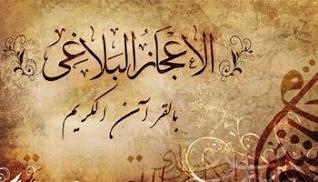 الإعجاز البلاغى
بالقرآن الكريم